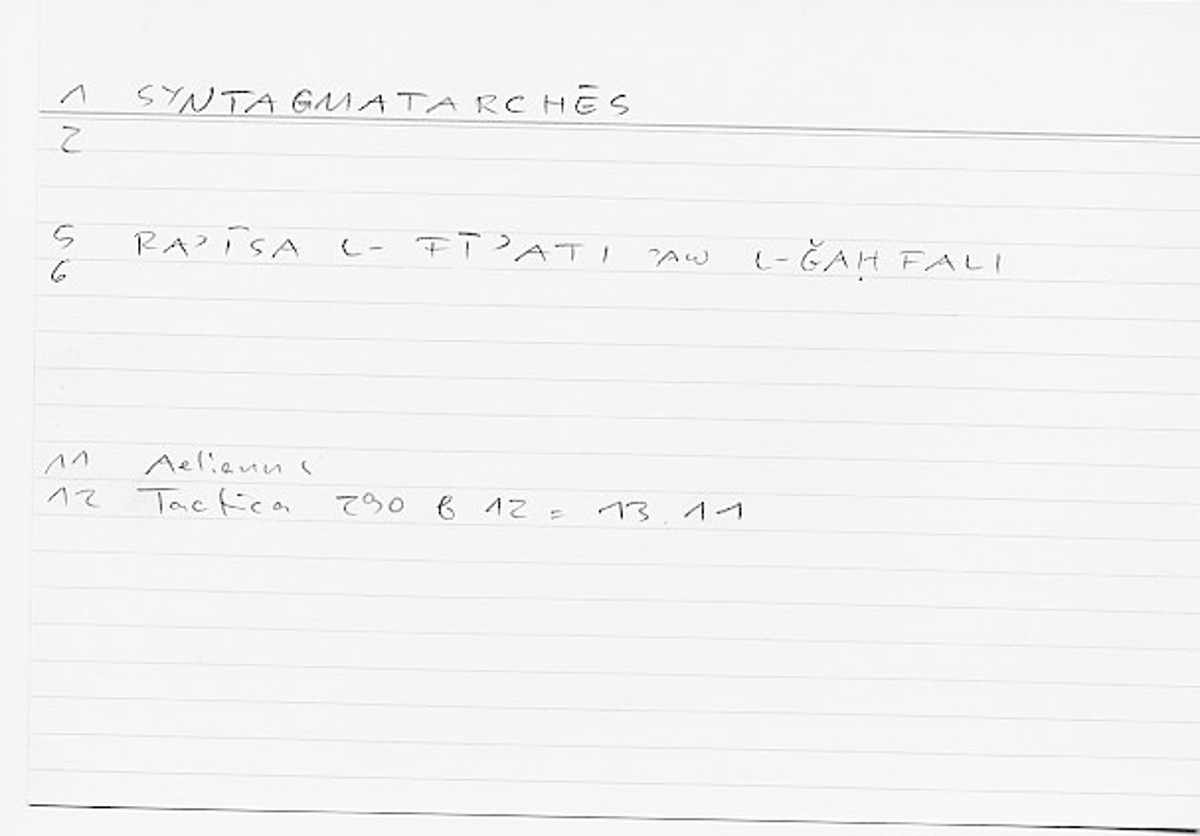 1 SYNTAGMATARCHĒS
2
5 RAʾĪSA L-FĪʾATI ʾAW L-ǦAḤFALI
6
11 Aelianus
12 Tactica 290 B 12 = 13.11